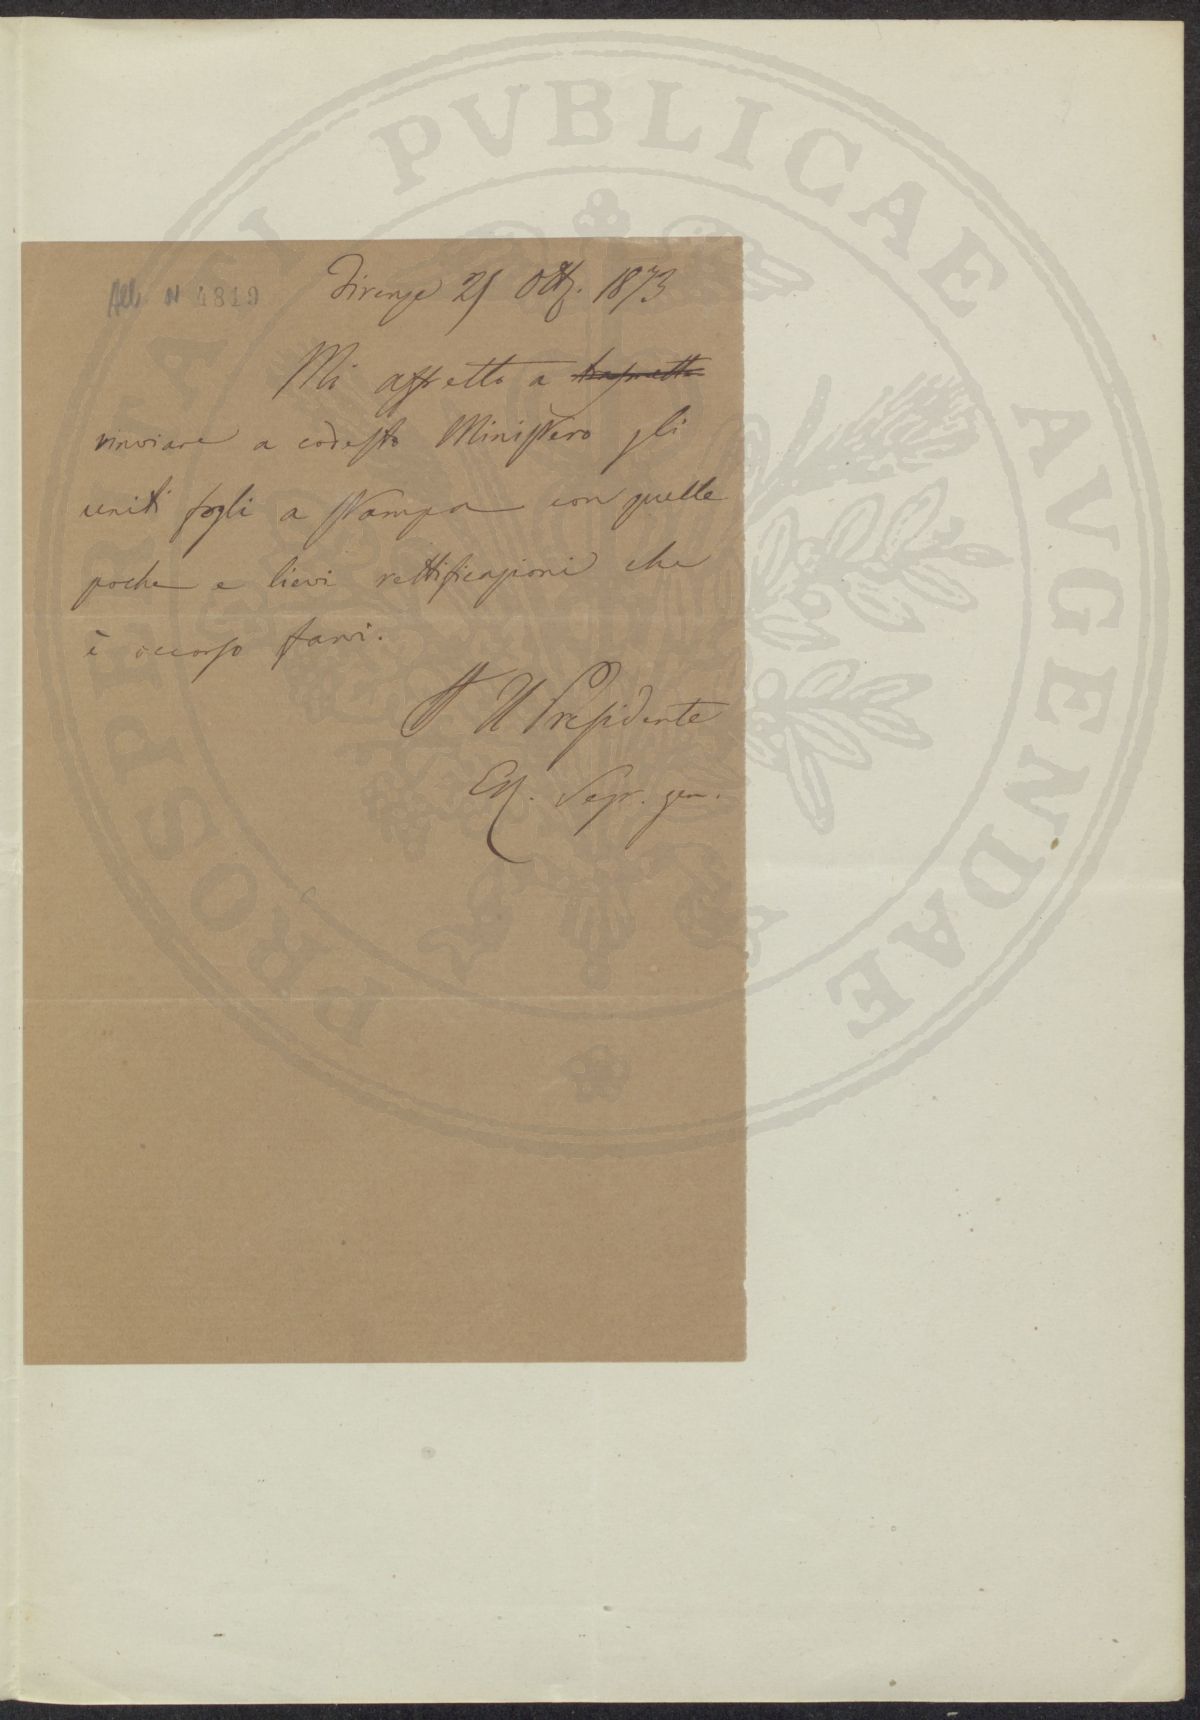 All. N 4819
Firenze 21 Ott. 1873
Mi affretto a
rinviare a codesto Ministero gli
uniti fogli a stampa con quelle
poche e lievi rettificazioni che
è occorso farvi.
Il Presidente
Segr. gen.
PROSPERITATI PVBLICAE AVGENDAE